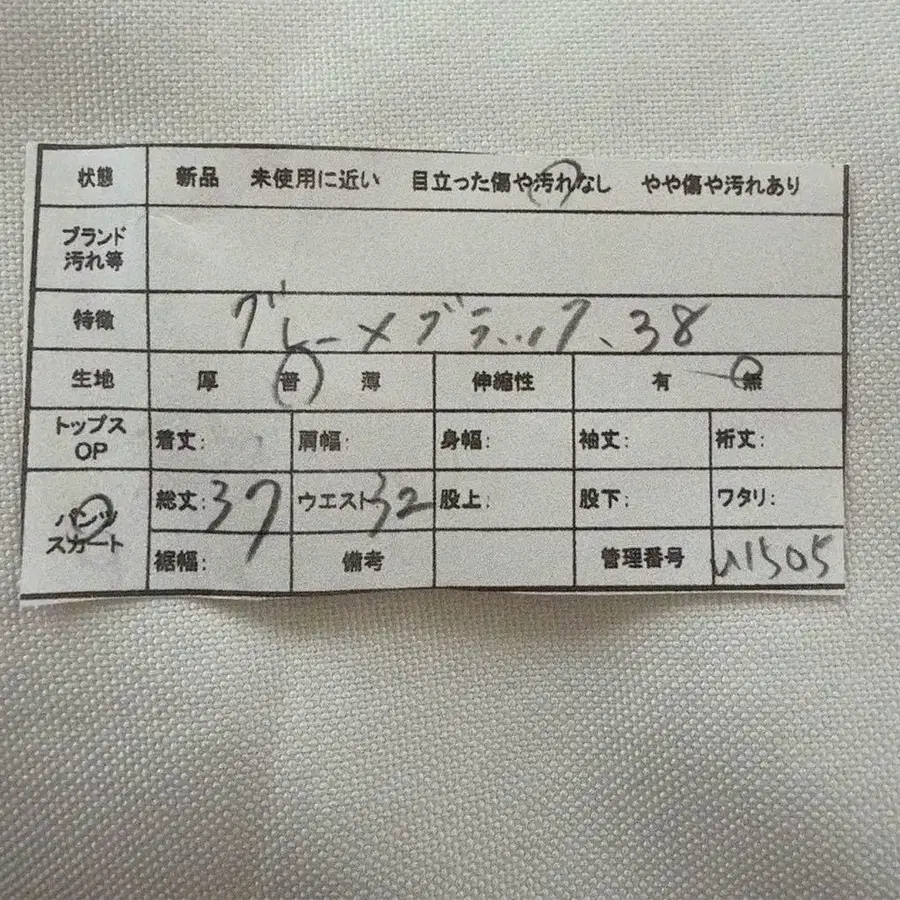 状態 新品 未使用に近い 目立った傷や汚れなし やや傷や汚れあり
ブランド
汚れ等
特徴 グレー×ブラック、38
生地 厚 普 薄 伸縮性 有 無
トップス
OP
着丈: 肩幅: 身幅: 袖丈: 裄丈:
パンツ
スカート
総丈:37 ウエスト32 股上: 股下: ワタリ:
裾幅: 備考 管理番号 U1505